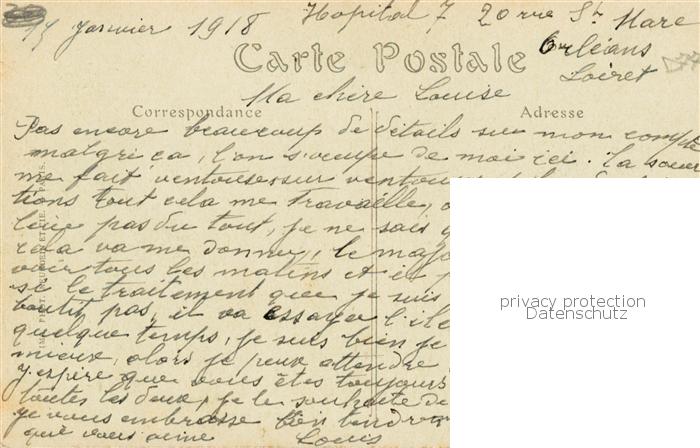 17 Janvier 1918 Hopital 7 20 rue St Marc
Orléans
Loiret
Carte Postale
Ma chère Louise
Correspondance Adresse
Pas encore beaucoup de détails sur mon compte
malgré ca, l'on s'occupe de moi ici. La soeur
me fait ventouse sur
tions tout cela me travaille,
pas du tout, je ne sais
va me donner, le
voir tous les matins et
si le traitement que je suis
boutit pas, il va essayer
quelque temps, je suis bien je
mieux, alors je peux attendre
J'espère que vous êtes toujours
toutes les deux, je le souhaite de
Je vous embrasse bien
qui vous aime Louis
privacy protection
Datenschutz